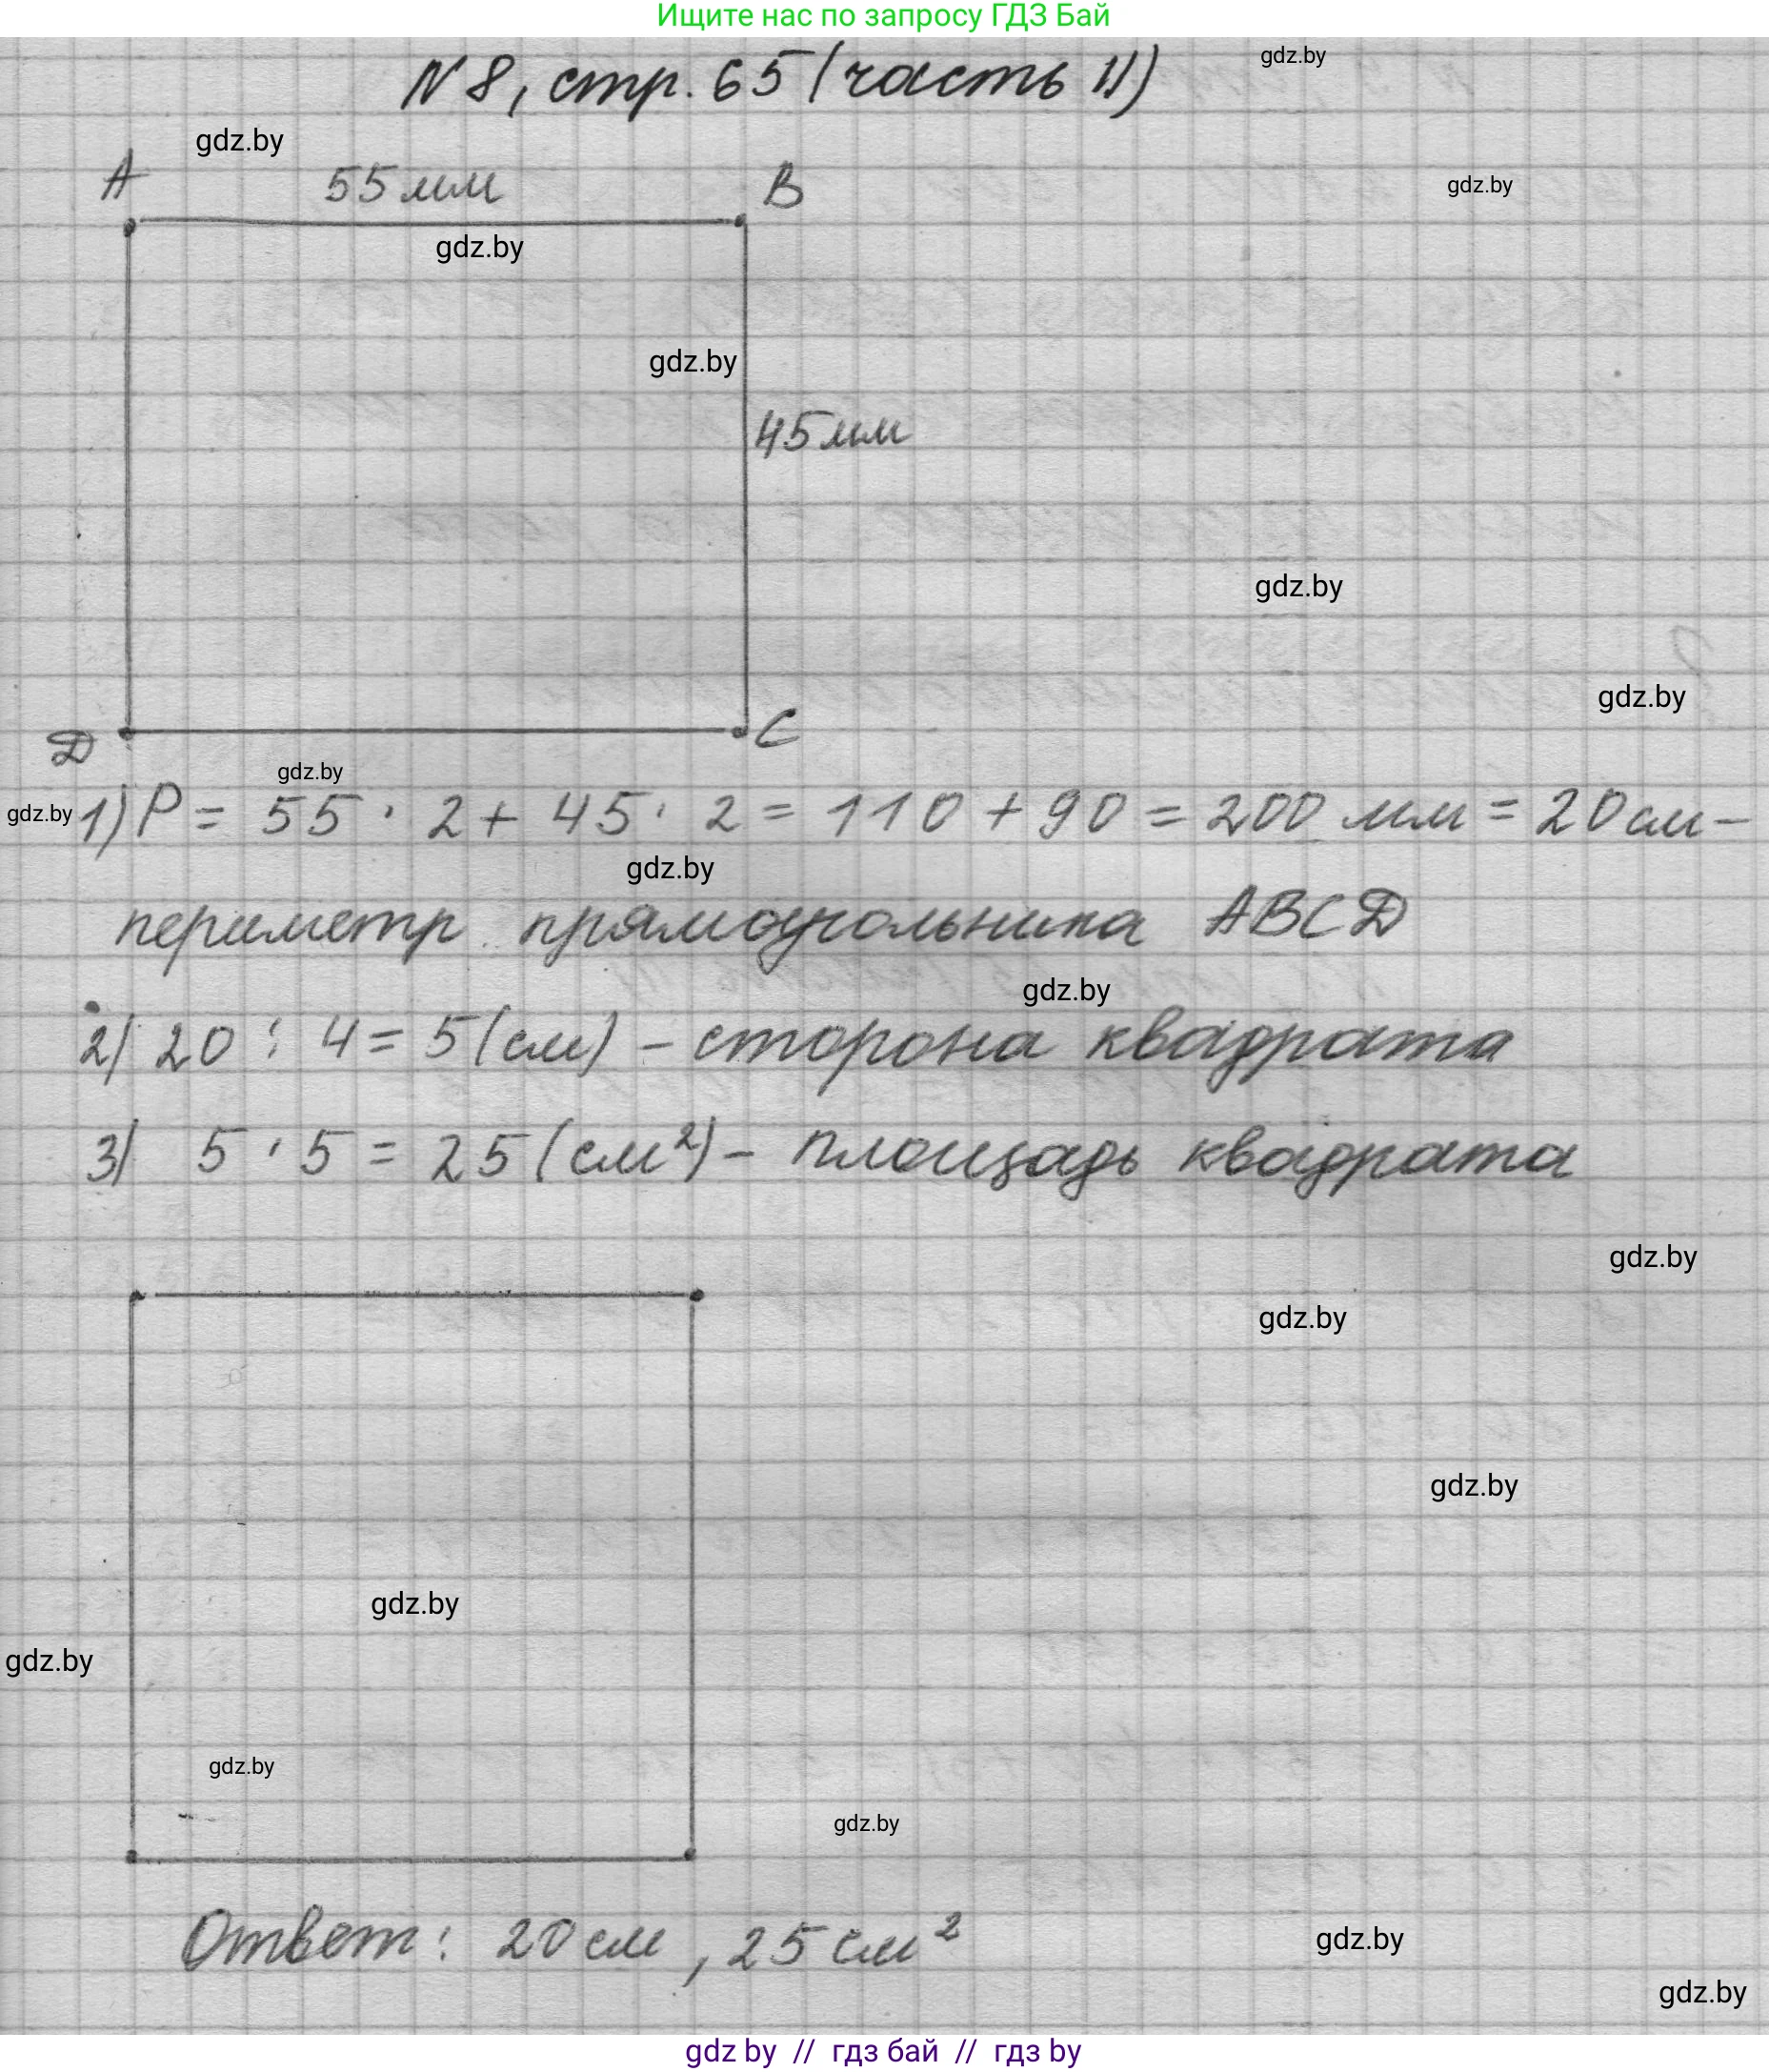 Ищите нас по запросу ГДЗ Бай
gdz.by
N 8, стр. 65 (часть 1)
gdz.by
A 55 мм B
gdz.by
gdz.by
gdz.by
45 мм
gdz.by
gdz.by
D C
gdz.by
gdz.by
1) P = 55 · 2 + 45 · 2 = 110 + 90 = 200 мм = 20 см -
gdz.by
периметр прямоугольника ABCD
gdz.by
2) 20 : 4 = 5 (см) - сторона квадрата
3) 5 · 5 = 25 (см²) - площадь квадрата
gdz.by
gdz.by
gdz.by
gdz.by
gdz.by
gdz.by
gdz.by
Ответ: 20 см, 25 см²
gdz.by
gdz.by
gdz.by // гдз бай // гдз by